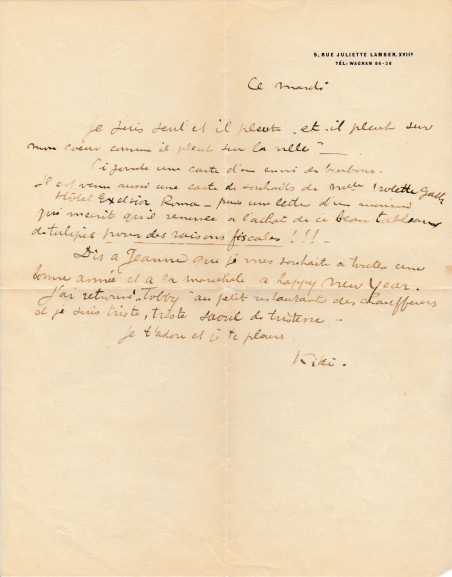 5, RUE JULIETTE LAMBER, XVIIe
TÉL: WAGRAM 86-26
Ce mardi
Je suis seul et il pleut - et il pleut sur
mon coeur comme il pleut sur la ville" -
Ci jointe une carte d'un envoi de bonbons.
Il est venu aussi une carte de souhaits de Melle
Hôtel Excelsior Roma - puis une lettre d'un monsieur
qui m'écrit qu'il renonce à l'achat de ce beau tableau
de tulipes pour des raisons fiscales!!! -
Dis a Jeanne que je vous souhaite a toutes une
bonne année et a la maréchale a happy New Year.
J'ai retrouvé "Tobby" au petit restaurant des chauffeurs
et je suis triste, triste saoul de tristesse -
Je t'adore et je te pleure
Kiki.